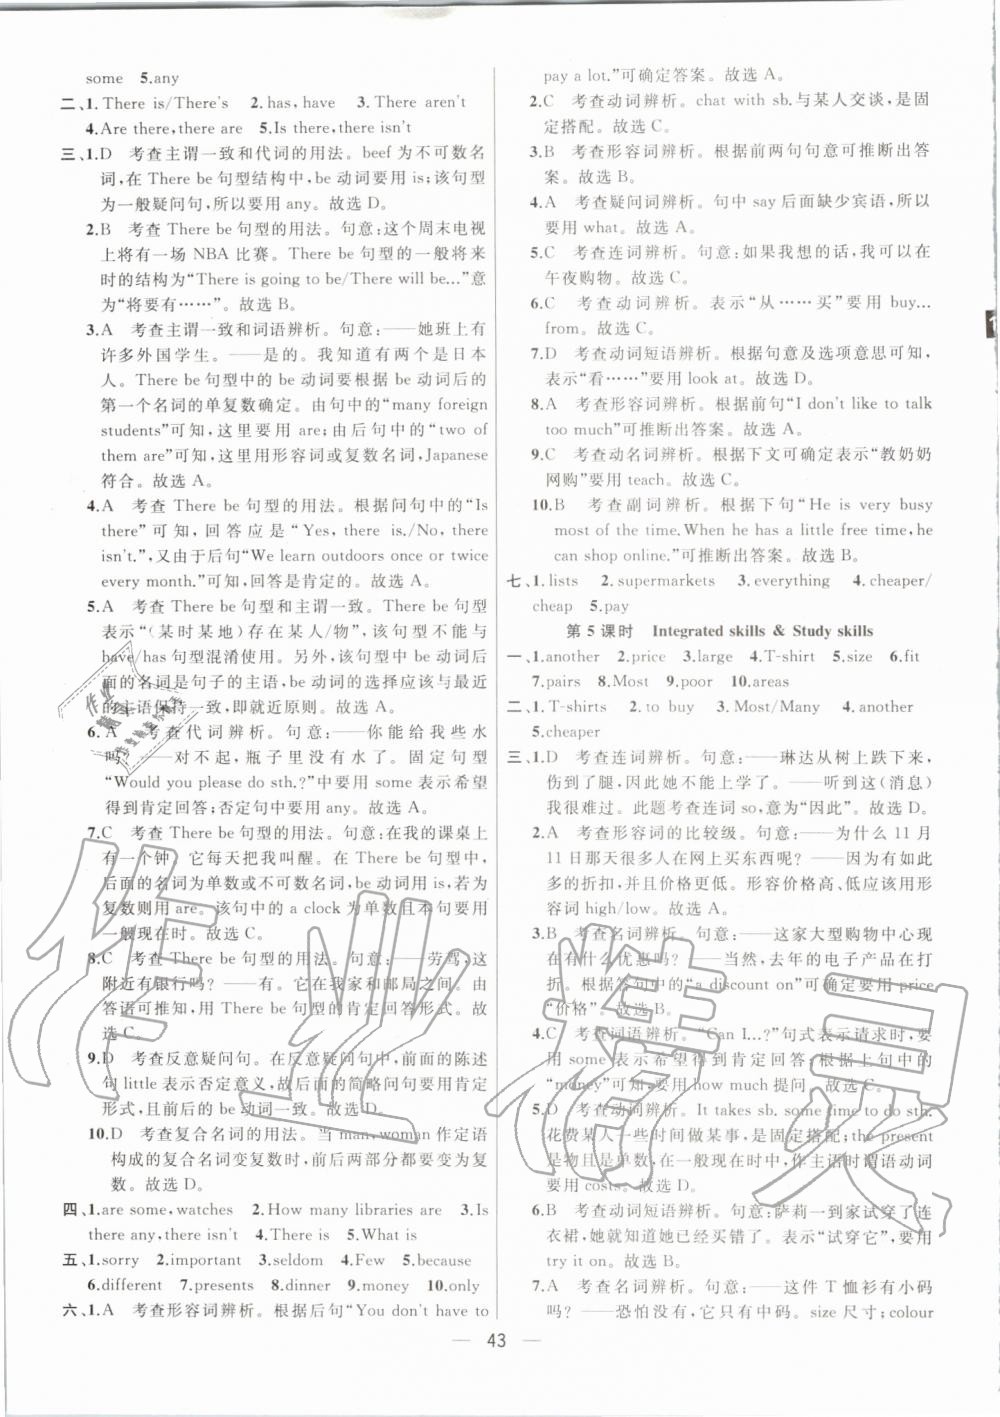 some　5.any
二、1.There is/There's　2.has,have　3.There aren't
4.Are there,there are　5.Is there,there isn't
三、1.D　考查主谓一致和代词的用法。beef为不可数名
词,在 There be句型结构中,be动词要用 is;该句型
为一般疑问句,所以要用 any。故选 D。
2.B　考查 There be句型的用法。句意:这个周末电视
上将有一场 NBA 比赛。There be句型的一般将来
时的结构为“There is going to be/There will be...”意
为“将要有……”。故选 B。
3.A　考查主谓一致和词语辨析。句意:——她班上有
许多外国学生。——是的。我知道有两个是日本
人。There be 句型中的 be 动词要根据 be 动词后的
第一个名词的单复数确定。由句中的“many foreign
students”可知,这里要用 are;由后句中的“two of
them are”可知,这里用形容词或复数名词,Japanese
符合。故选 A。
4.A　考查 There be 句型的用法。根据问句中的“Is
there”可知,回答应是“Yes, there is./No, there
isn't.”,又由于后句“We learn outdoors once or twice
every month.”可知,回答是肯定的。故选 A。
5.A　考查 There be 句型和主谓一致。There be 句型
表示“(某时某地)存在某人/物”,该句型不能与
have/has句型混淆使用。另外,该句型中 be动词后
面的名词是句子的主语,be 动词的选择应该与最近
的主语保持一致,即就近原则。故选 A。
6.A　考查代词辨析。句意:——你能给我些水
吗?——对不起,瓶子里没有水了。固定句型
“Would you please do sth.?”中要用 some 表示希望
得到肯定回答;否定句中要用 any。故选 A。
7.C　考查 There be句型的用法。句意:在我的课桌上
有一个钟。它每天把我叫醒。在 There be 句型中,
后面的名词为单数或不可数名词,be动词用 is;若为
复数则用 are。该句中的 a clock 为单数且本句要用
一般现在时。故选 C。
8.C　考查 There be句型的用法。句意:——劳驾,这
附近有银行吗?——有。它在我家和邮局之间。由
答语可推知,用 There be 句型的肯定回答形式。故
选 C。
9.D　考查反意疑问句。在反意疑问句中,前面的陈述
句 little 表示否定含义,故后面的简略问句要用肯定
形式,且前后的 be动词一致。故选 D。
10.D　考查复合名词的用法。当 man,woman 作定语
构成的复合名词变复数时,前后两部分都要变为复
数。故选 D。
四、1.are some,watches　2.How many libraries are　3.Is
there any,there isn't　4.There are　5.What is
五、1.sorry　2.important　3.seldom　4.Few　5.because
6.different　7.presents　8.dinner　9.money　10.only
六、1.A　考查形容词辨析。根据后句“You don't have to
pay a lot.”可确定答案。故选 A。
2.C　考查动词辨析。chat with sb.与某人交谈,是固
定搭配。故选 C。
3.B　考查形容词辨析。根据前两句句意可推断出答
案。故选 B。
4.A　考查疑问词辨析。句中 say 后面缺少宾语,所以
要用 what。故选 A。
5.C　考查连词辨析。句意:如果我想的话,我可以在
午夜购物。故选 C。
6.C　考查动词辨析。表示“从……买”要用 buy...
from。故选 C。
7.D　考查动词短语辨析。根据句意及选项意思可知,
表示“看……”要用 look at。故选 D。
8.A　考查形容词辨析。根据前句“I don't like to talk
too much”可推断出答案。故选 A。
9.C　考查动名词辨析。根据下文可确定表示“教奶奶
网购”要用 teach。故选 C。
10.B　考查副词辨析。根据下句“He is very busy
most of the time.When he has a little free time,he
can shop online.”可推断出答案。故选 B。
七、1.lists　2.supermarkets　3.everything　4.cheaper/
cheap　5.pay
第 5 课时　Integrated skills & Study skills
一、1.another　2.price　3.large　4.T-shirt　5.size　6.fit
7.pairs　8.Most　9.poor　10.areas
二、1.T-shirts　2.to buy　3.Most/Many　4.another
5.cheaper
三、1.D　考查连词辨析。句意:——琳达从树上跌下来,
伤到了腿,因此她不能上学了。——听到这(消息)
我很难过。此题考查连词 so,意为“因此”。故选 D。
2.A　考查形容词的比较级。句意:——为什么 11 月
11 日那天很多人在网上买东西呢?——因为有更多
的折扣,并且价格更低。形容价格高、低应该用形
容词 high/low。故选 A。
3.B　考查名词辨析。句意:——这家大型购物中心现
在有什么优惠吗?——当然,去年的电子产品在打
折。根据答句中的“a discount on”可确定要用 price
“价格”。故选 B。
4.C　考查词语辨析。“Can I...?”句式表示请求时,要
用 some 表示希望得到肯定回答;根据上句中的
“money”可知,要用 how much 提问。故选 C。
5.D　考查动词辨析。It takes sb. some time to do sth.
花费某人一些时间做某事,是固定搭配;the present
是物且是单数,作主语时谓语动词
要用 costs。故选 D。
6.B　考查动词短语辨析。句意:萨莉一到家就试穿了连
衣裙,她就知道她已经买对了。表示“试穿它”,要用
try it on。故选 B。
7.A　考查名词辨析。句意:——这件 T 恤衫有小码
吗?——恐怕没有,它只有中码。size 尺寸;colour
43
作业精灵